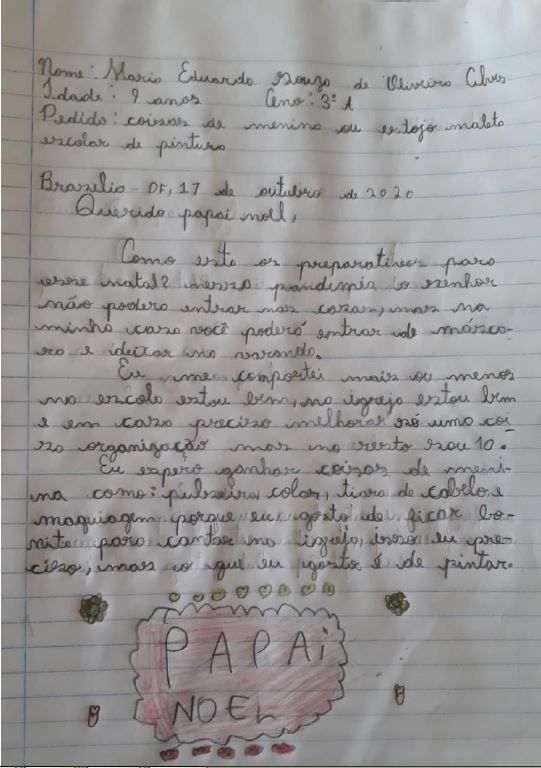 Nome: Maria Eduarda Souza de Oliveira Alves
Idade: 9 anos Ano: 3º A
Pedido: coisas de menina ou estojo maleta
escolar de pintura
Brazilia - DF, 17 de outubro de 2020
Querido papai noell,
Como esta os preparativos para
esse natal? nessa pandemia o senhor
não podera entrar nas casas, mais na
minha casa você poderá entrar de másca-
ra e deixar na varanda.
Eu me comportei mais ou menos
na escola estou bem, na igreja estou bem
e em casa preciso melhorar só uma coi
sa organização mas no resto sou 10.
Eu espero ganhar coisas de meni-
na como: pulseira, colar, tiara de cabelo e
maquiagem porque eu gosto de ficar bo-
nita para cantar na igreja, isso eu pre-
ciso, mais o que eu gosto é de pintar.
PAPAi
NOEL